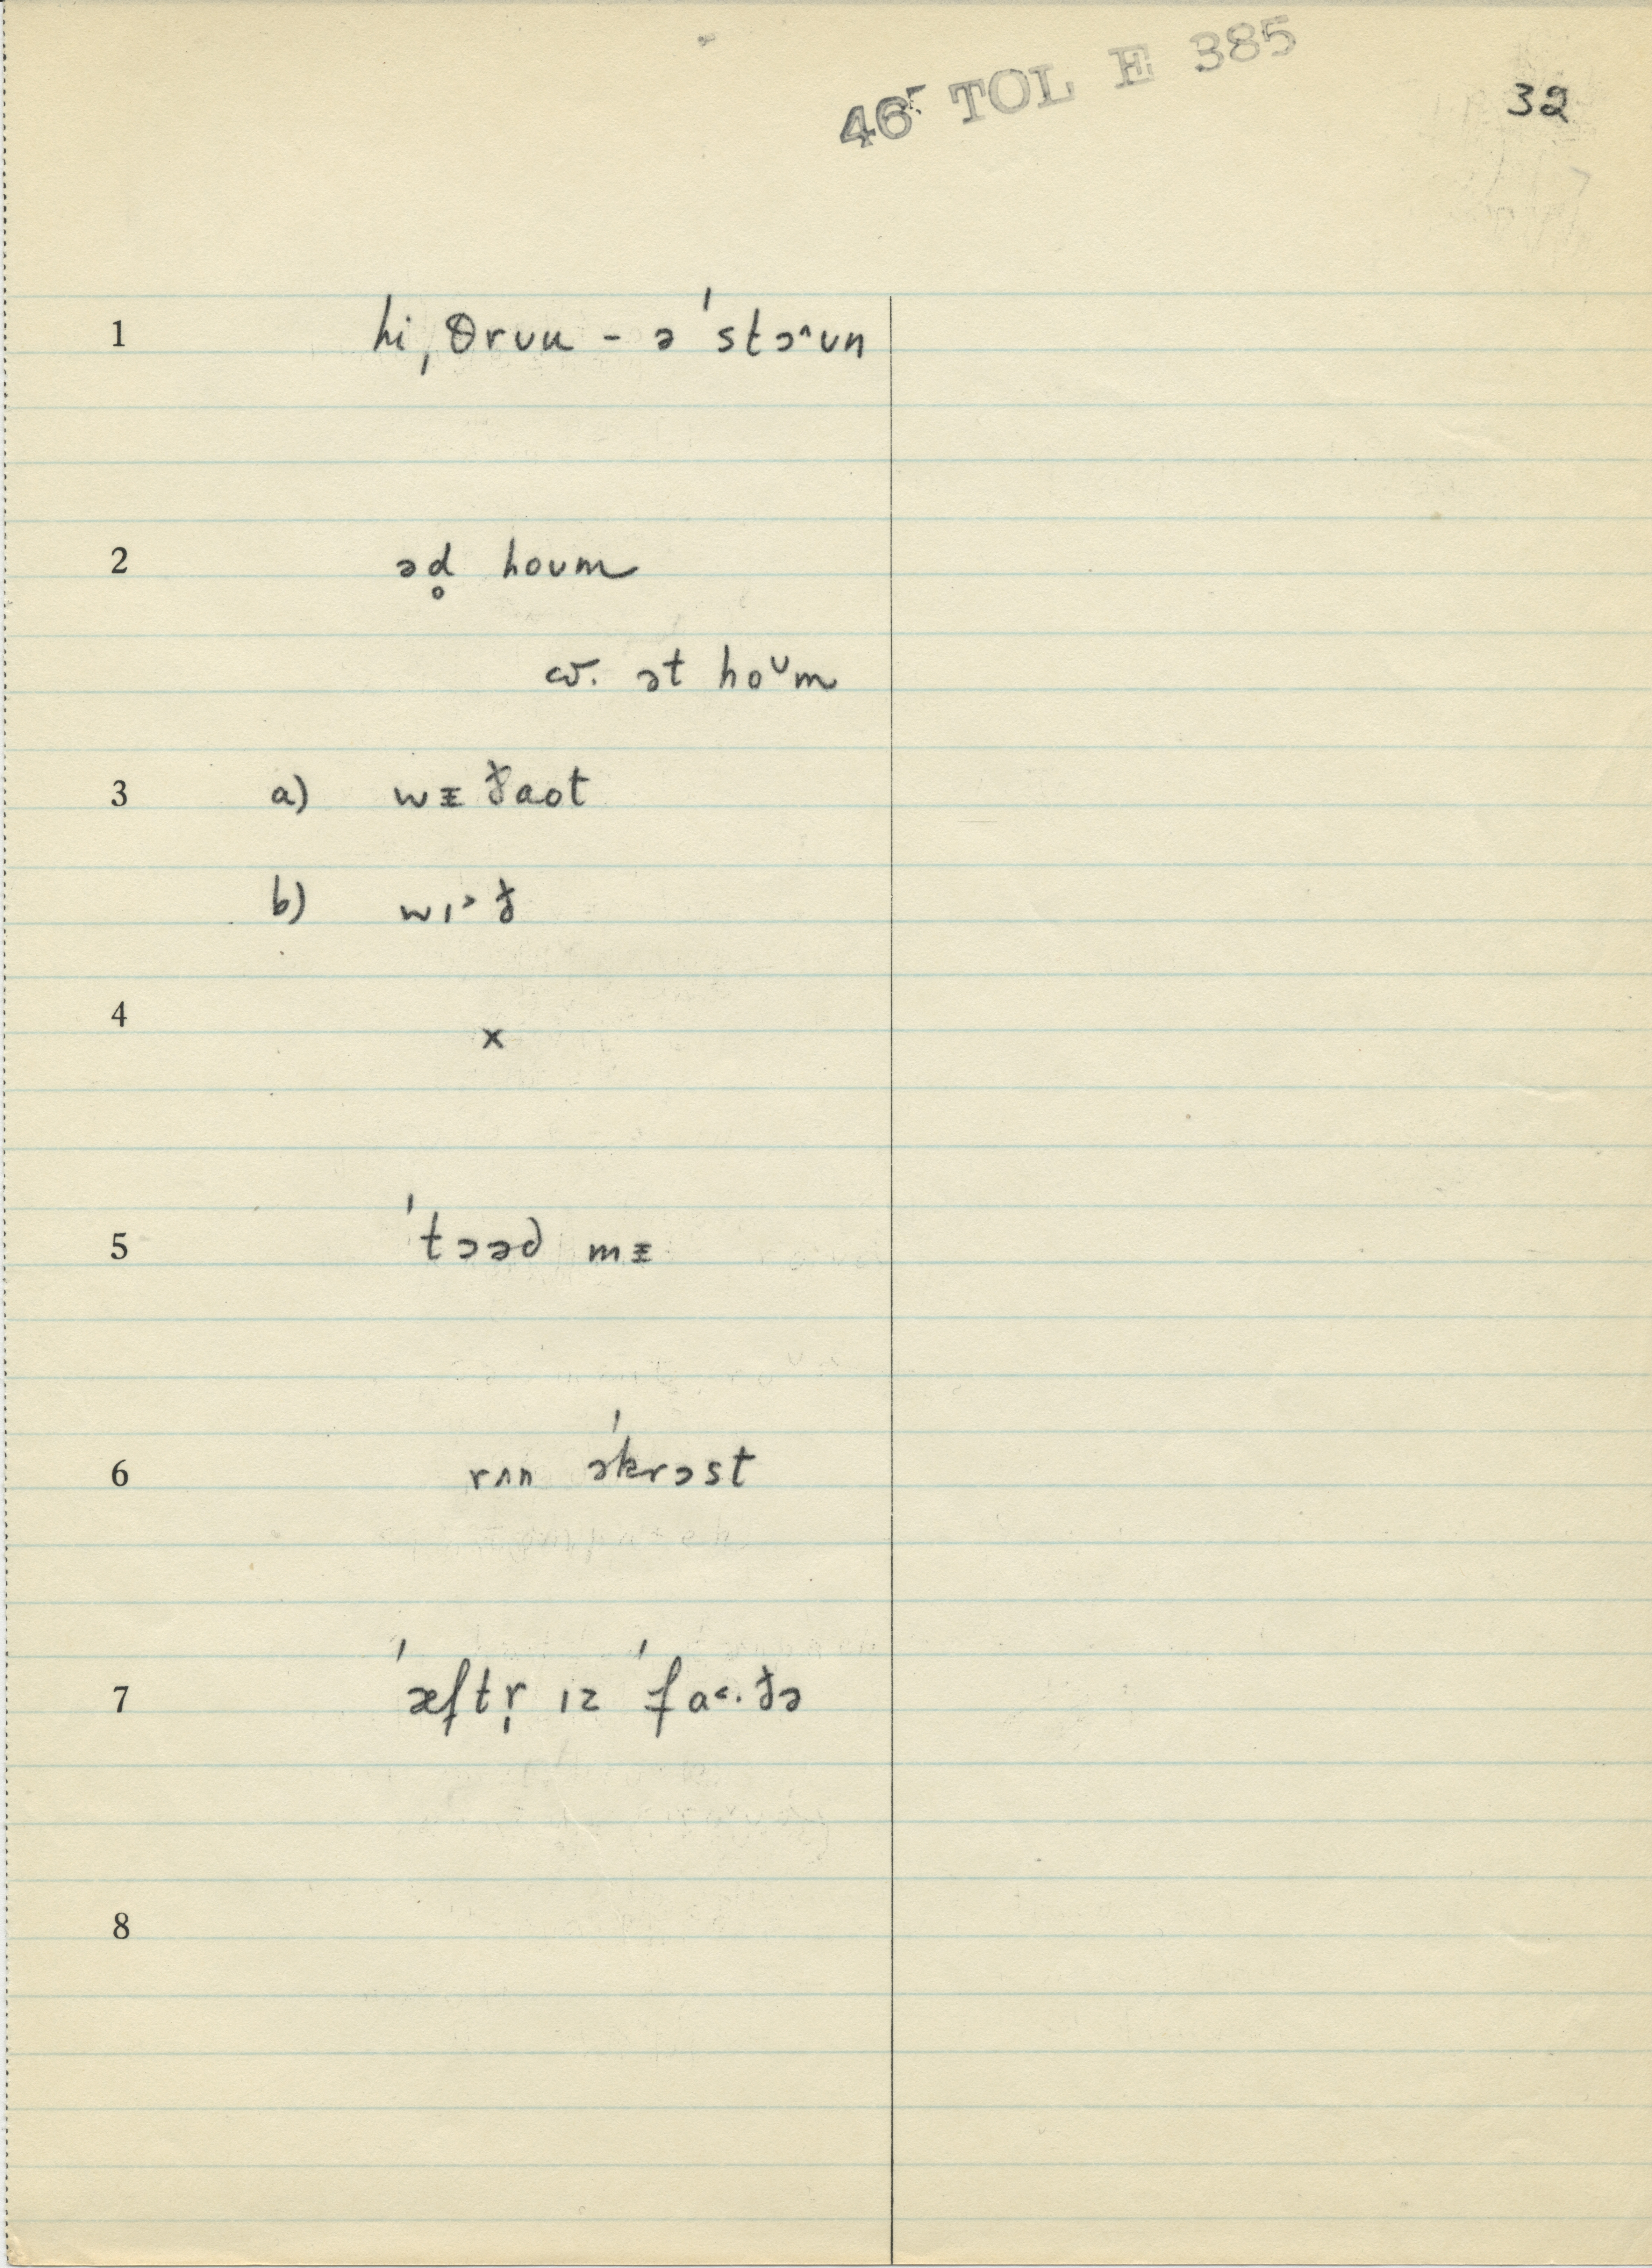 46 TOL E 385
32
1 hi ˌθrʊu - ə ˈstɔ^ʊn
2 əd̥ hoʊm
cv. ət hoᶷm
3 a) wᵻðaot
b) wɪ˃ð
4 x
5 ˈtɔəd mᵻ
6 rʌn əˈkrɔst
7 ˈæftr̩ ɪz ˈfa˂·ðə
8